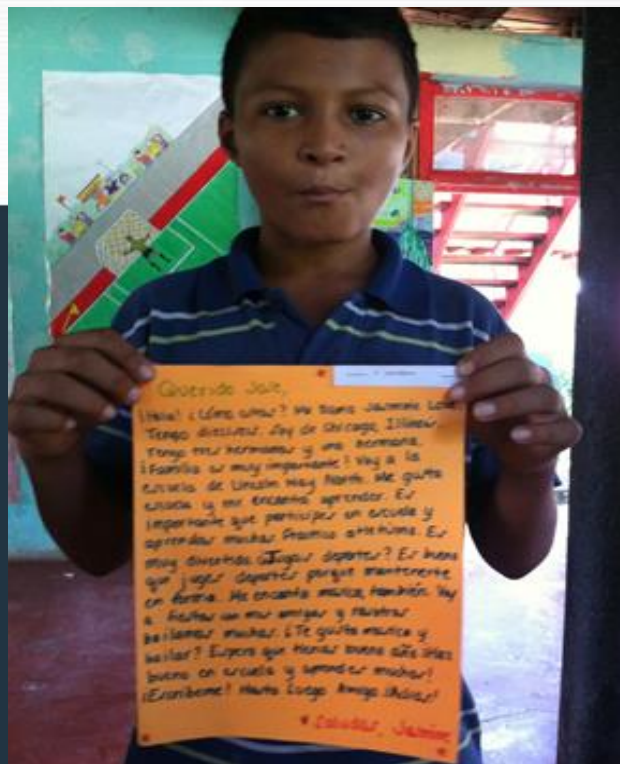 Querido José,
¡Hola! ¿Cómo estas? Me llamo Jasmine
Tengo dieciseis. Soy de Chicago, Illinois
Tengo tres hermanos y una hermana.
¡Familia es muy importante! Voy a la
escuela de Lincoln Way North. Me gusta
escuela y me encanta aprender. Es
importante que participes en escuela y
aprendas muchas. Practico atletismo. Es
muy divertido. ¿Juegas deportes? Es bueno
que juges deportes porque mantenerte
en forma. Me encanta música, también. Voy
a fiestas con mis amigas y nosotros
bailamos muchas. ¿Te gusta música y
bailar? Espero que tienas bueno año
bueno en escuela y aprendes muchas!
¡Escribeme! Hasta Luego Amigo ¡Adios!
Saludos, Jasmine